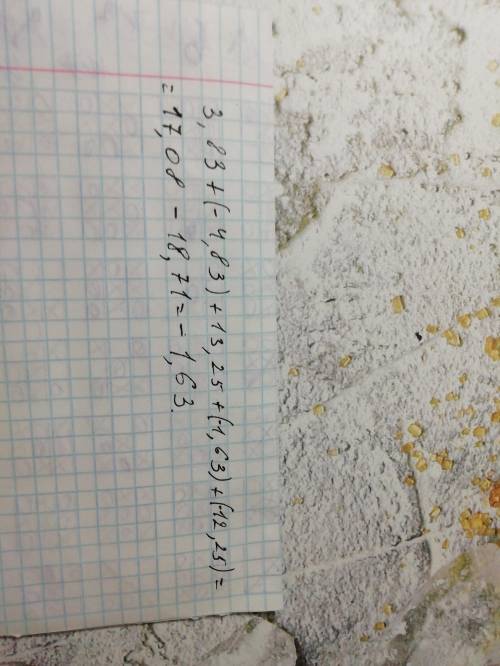 3,83+(-4,83)+13,25+(-1,63)+(-12,25)=
=17,08-18,71=-1,63.